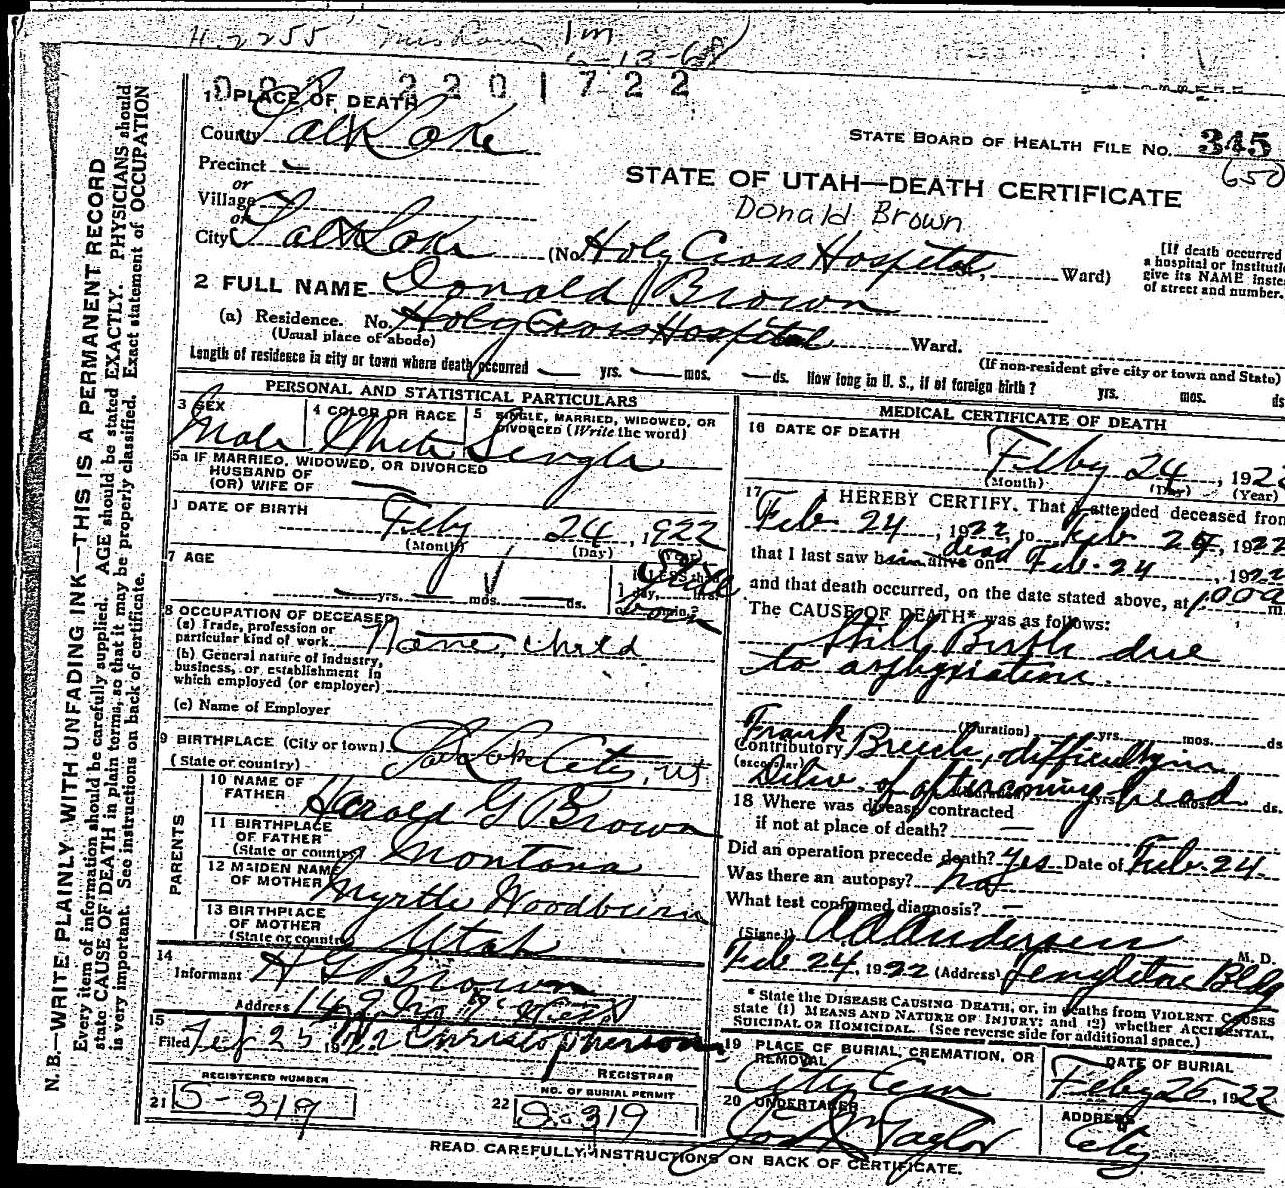 H 2255
1m
-13-68
2201722
1 PLACE OF DEATH
County Salt Lake
STATE BOARD OF HEALTH FILE NO. 345
(650
Precinct
or
Village
or
STATE OF UTAH—DEATH CERTIFICATE
Donald Brown
City Salt Lake (No. Holy Cross Hospital, Ward)
[If death occurred
a hospital or instituti
give its NAME inste
of street and number.
2 FULL NAME Donald Brown
(a) Residence. No. Holy Cross Hospital Ward.
(Usual place of abode)
(If non-resident give city or town and State)
Length of residence in city or town where death occurred yrs. mos. ds. How long in U. S., if of foreign birth? yrs. mos. ds
PERSONAL AND STATISTICAL PARTICULARS
3 SEX
Male
4 COLOR OR RACE
White
5 SINGLE, MARRIED, WIDOWED, OR
DIVORCED (Write the word)
Single
5a IF MARRIED, WIDOWED, OR DIVORCED
HUSBAND OF
(OR) WIFE OF
DATE OF BIRTH
Feby 24, 1922
(Month) (Day) (Year)
7 AGE
yrs. mos. ds.
If LESS than
1 day, hrs.
or min.?
Still
born
8 OCCUPATION OF DECEASED
(a) Trade, profession or
particular kind of work None, child
(b) General nature of industry,
business, or establishment in
which employed (or employer)
(c) Name of Employer
9 BIRTHPLACE (City or town) Salt Lake City, Ut
(State or country)
PARENTS
10 NAME OF
FATHER Harold G Brown
11 BIRTHPLACE
OF FATHER
(State or country) Montana
12 MAIDEN NAME
OF MOTHER Myrtle Woodburn
13 BIRTHPLACE
OF MOTHER
(State or country) Utah
14
Informant H G Brown
Address
15
Filed Feb 25 1922 Christopherson
REGISTRAR
REGISTERED NUMBER
21 S-319
NO. OF BURIAL PERMIT
22 S-319
MEDICAL CERTIFICATE OF DEATH
16 DATE OF DEATH
Feby 24, 192
(Month) (Day) (Year)
17 I HEREBY CERTIFY. That I attended deceased from
Feb 24, 1922, to Feb 24, 1922
that I last saw him alive on dead Feb. 24, 1922
and that death occurred, on the date stated above, at 1.00 a m
The CAUSE OF DEATH* was as follows:
Still Birth due
to asphyxiation.
(Duration) yrs. mos. ds
Contributory Frank Breech, difficulty in
(Secondary)
Deliv. of aftercoming head
yrs. mos. ds.
18 Where was disease contracted
if not at place of death?
Did an operation precede death? Yes Date of Feb. 24.
Was there an autopsy? No
What test confirmed diagnosis?
(Signed) A D Andersen M. D.
Feb 24, 1922 (Address) Templeton Bldg
* State the DISEASE CAUSING DEATH, or, in deaths from VIOLENT CAUSES
state (1) MEANS AND NATURE OF INJURY; and (2) whether ACCIDENTAL,
SUICIDAL OR HOMICIDAL. (See reverse side for additional space.)
19 PLACE OF BURIAL, CREMATION, OR
REMOVAL
City Cem
DATE OF BURIAL
Feby 25, 1922
20 UNDERTAKER
Taylor
ADDRESS
City
READ CAREFULLY INSTRUCTIONS ON BACK OF CERTIFICATE.
N. B.—WRITE PLAINLY WITH UNFADING INK—THIS IS A PERMANENT RECORD
Every item of information should be carefully supplied. AGE should be stated EXACTLY. PHYSICIANS should
state CAUSE OF DEATH in plain terms, so that it may be properly classified. Exact statement of OCCUPATION
is very important. See instructions on back of certificate.